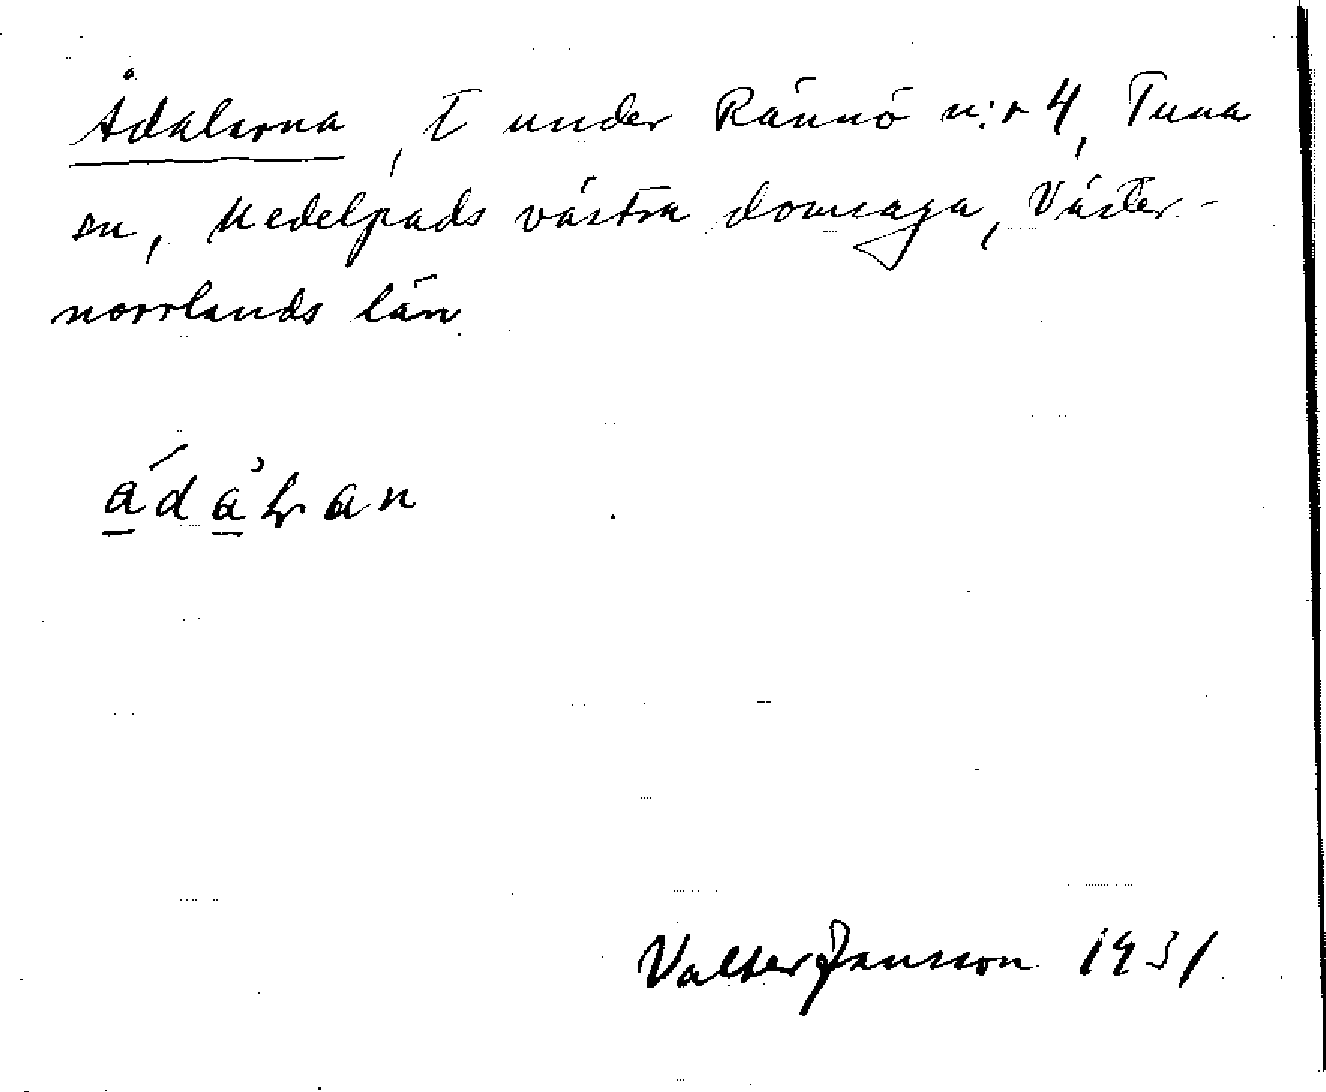 Ådalarna, t under Rännö n:r 4, Tuna
sn, Medelpads västra domsaga, Väster-
norrlands län.
Valter Jansson 1931